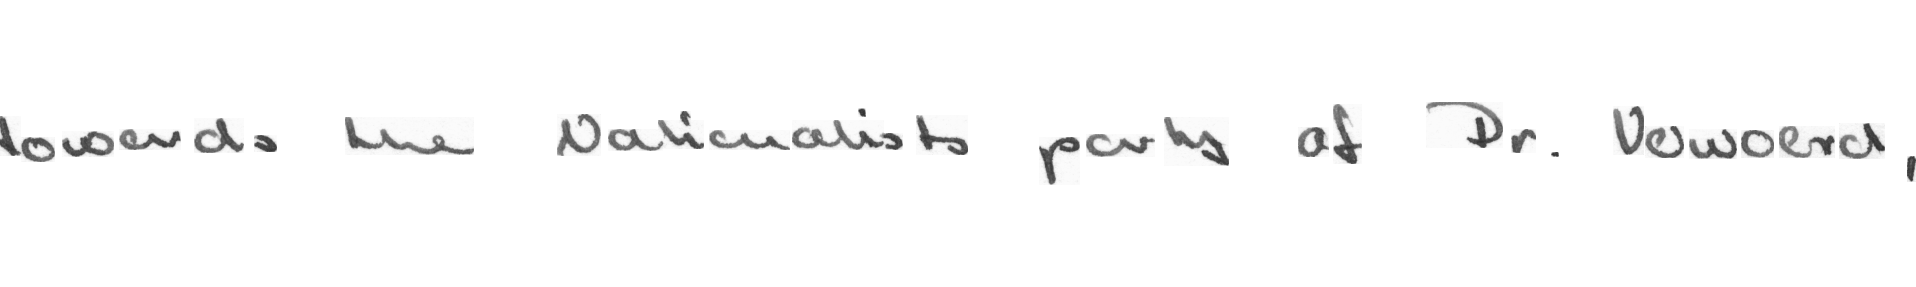 towards the Nationalists party of Dr. Vewoerd,